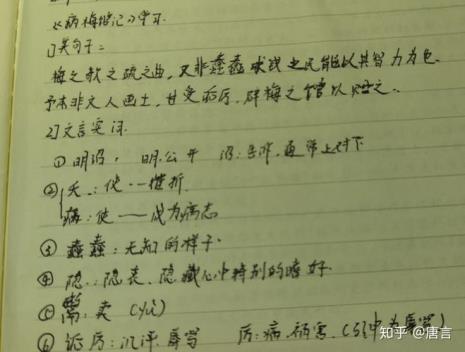 《病梅馆记》学习.
1)关句子：
梅之欹之疏之曲，又非蠢蠢求钱之民能以其智力为也.
予本非文人画士，甘受诟厉，辟梅之馆以贮之.
2)文言实词.
①明诏，明：公开 诏：告诉，通常上对下
②夭：使——摧折
病：使——成为病态
③蠢蠢：无知的样子.
④隐：隐衷、隐藏心中特别的嗜好.
⑤鬻：卖 (yù)
⑥诟厉：讥评、辱骂 厉：病，祸害.(
知乎 @唐言